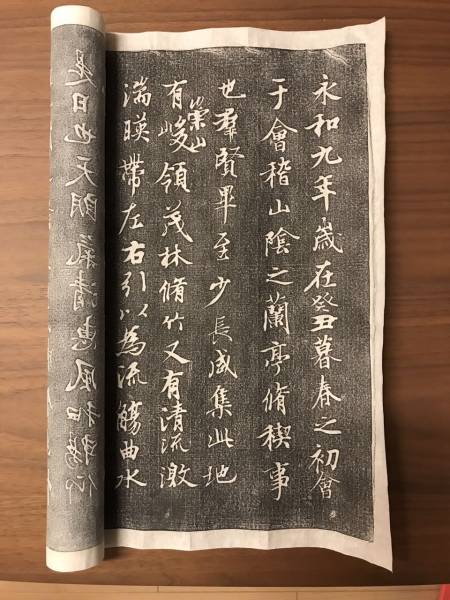 永和九年歲在癸丑暮春之初會
于會稽山陰之蘭亭脩稧事
也羣賢畢至少長咸集此地
有崇山峻領茂林脩竹又有清流激
湍暎帶左右引以為流觴曲水
是日也天朗氣清惠風和暢仰